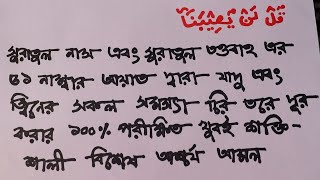 قُلْ لَنْ يُصِيْبَنَا
সুরাতুল নাস এবং সুরাতুল তওবাহ এর
৫১ নাম্বার আয়াত দ্বারা যাদু এবং
জ্বিনের সকল সমস্যা চির তরে দূর
করার ১০০% পরীক্ষিত খুবই শক্তি-
শালী বিশেষ আশ্চর্য আমল